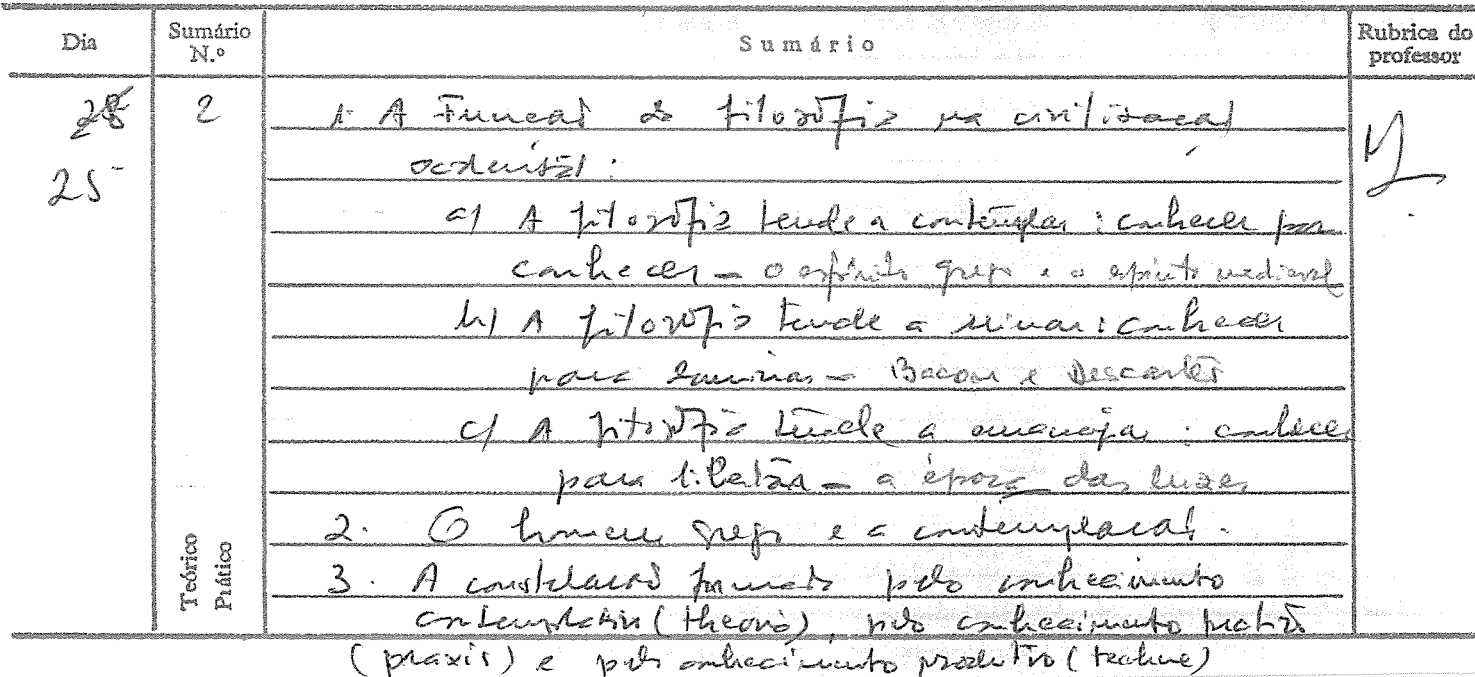 Dia Sumário N.º Sumário Rubrica do professor
28 2 1. A Função da filosofia na civilização
25 ocidental:
a) A filosofia tende a contemplar: conhecer por
conhecer – o espírito grego e o espírito medieval
b) A filosofia tende a : conhecer
para dominar – Bacon e Descartes
c) A filosofia tende a emancipar: conhecer
para libertar – a época das luzes
2. O homem grego e a contemplação.
3. A constelação formada pelo conhecimento
contemplativo (theoria), pelo conhecimento prático
(praxis) e pelo conhecimento produtivo (techne)
Teórico
Prático